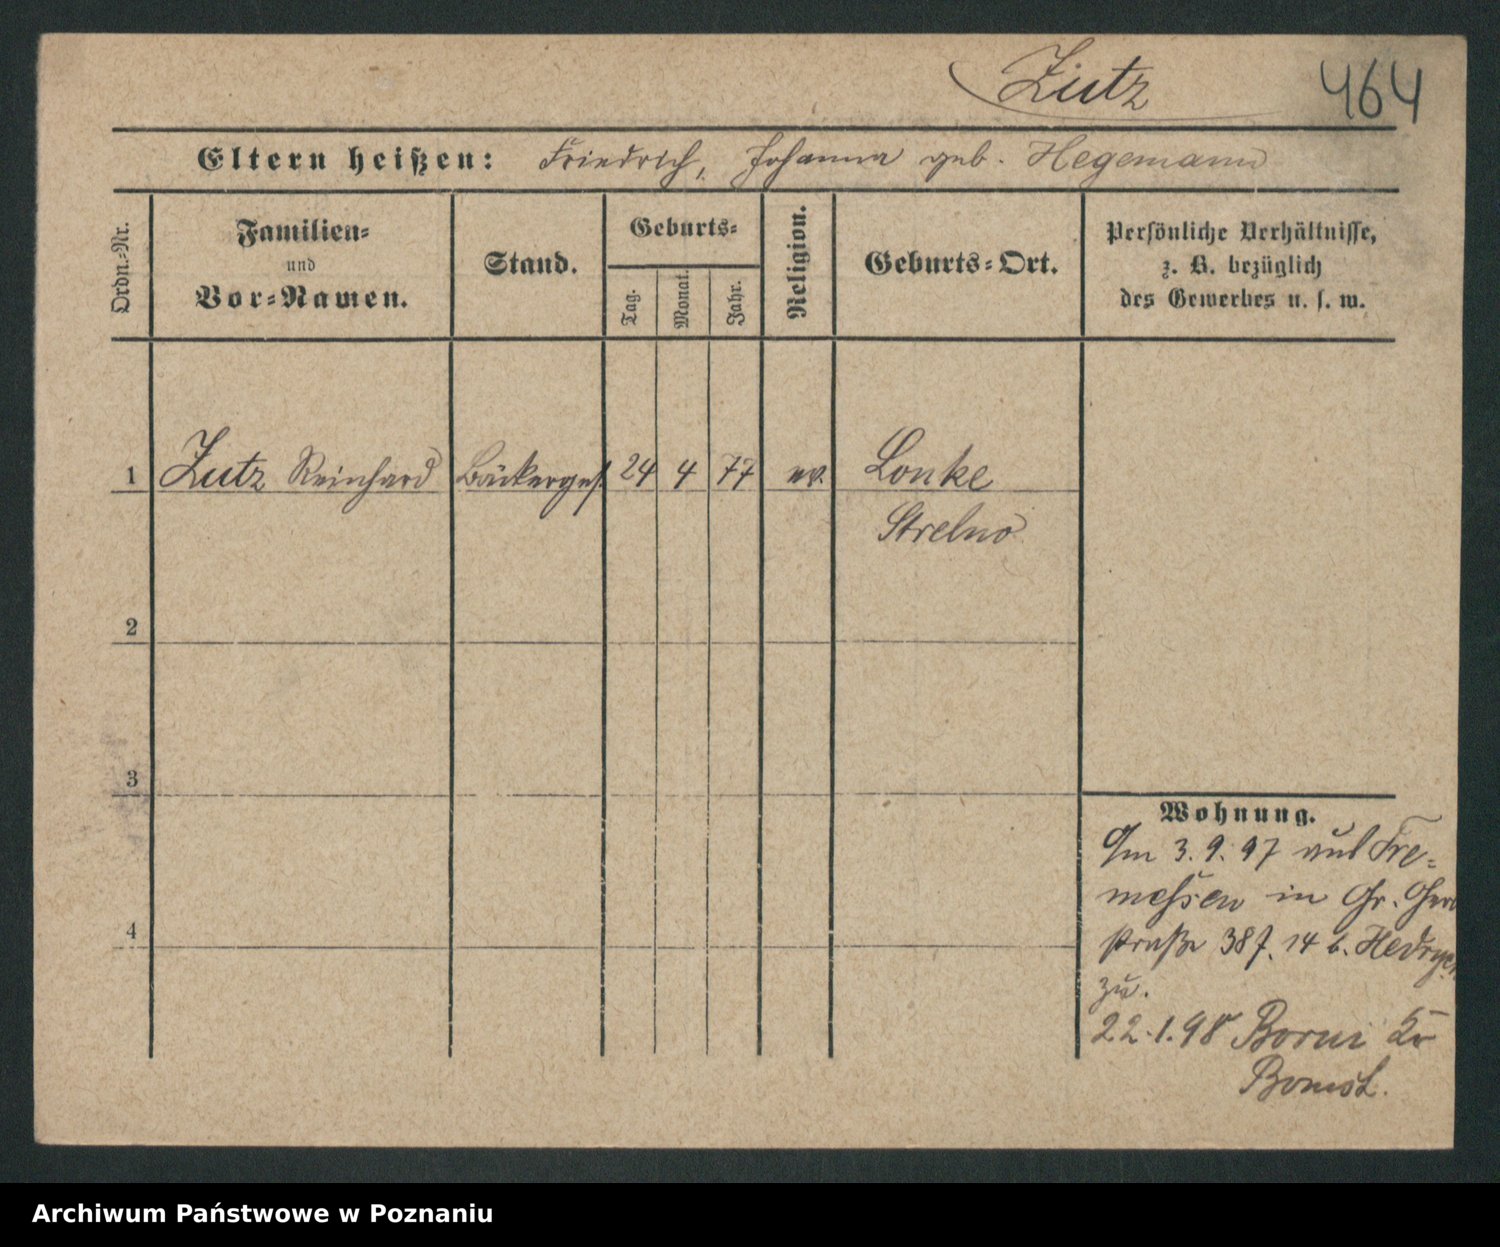 Zutz 464
Eltern heißen: Friedrich, Johanna geb. Hegemann
Ordn.-Nr.
Familien-
und
Vor-Namen.
Stand.
Geburts-
Tag.
Monat.
Jahr.
Religion.
Geburts-Ort.
Persönliche Verhältnisse,
z. B. bezüglich
des Gewerbes u. s. w.
1 Zutz Reinhard Bäckerges. 24 4 77 ev. Lonke
Strelno
2
3
4
Wohnung.
Am 3.9.97 aus Tre-
messen in Gr. Gerb
straße 38 14 b.
zu.
22.1.98 Borui Kr
Bomst.
Archiwum Państwowe w Poznaniu